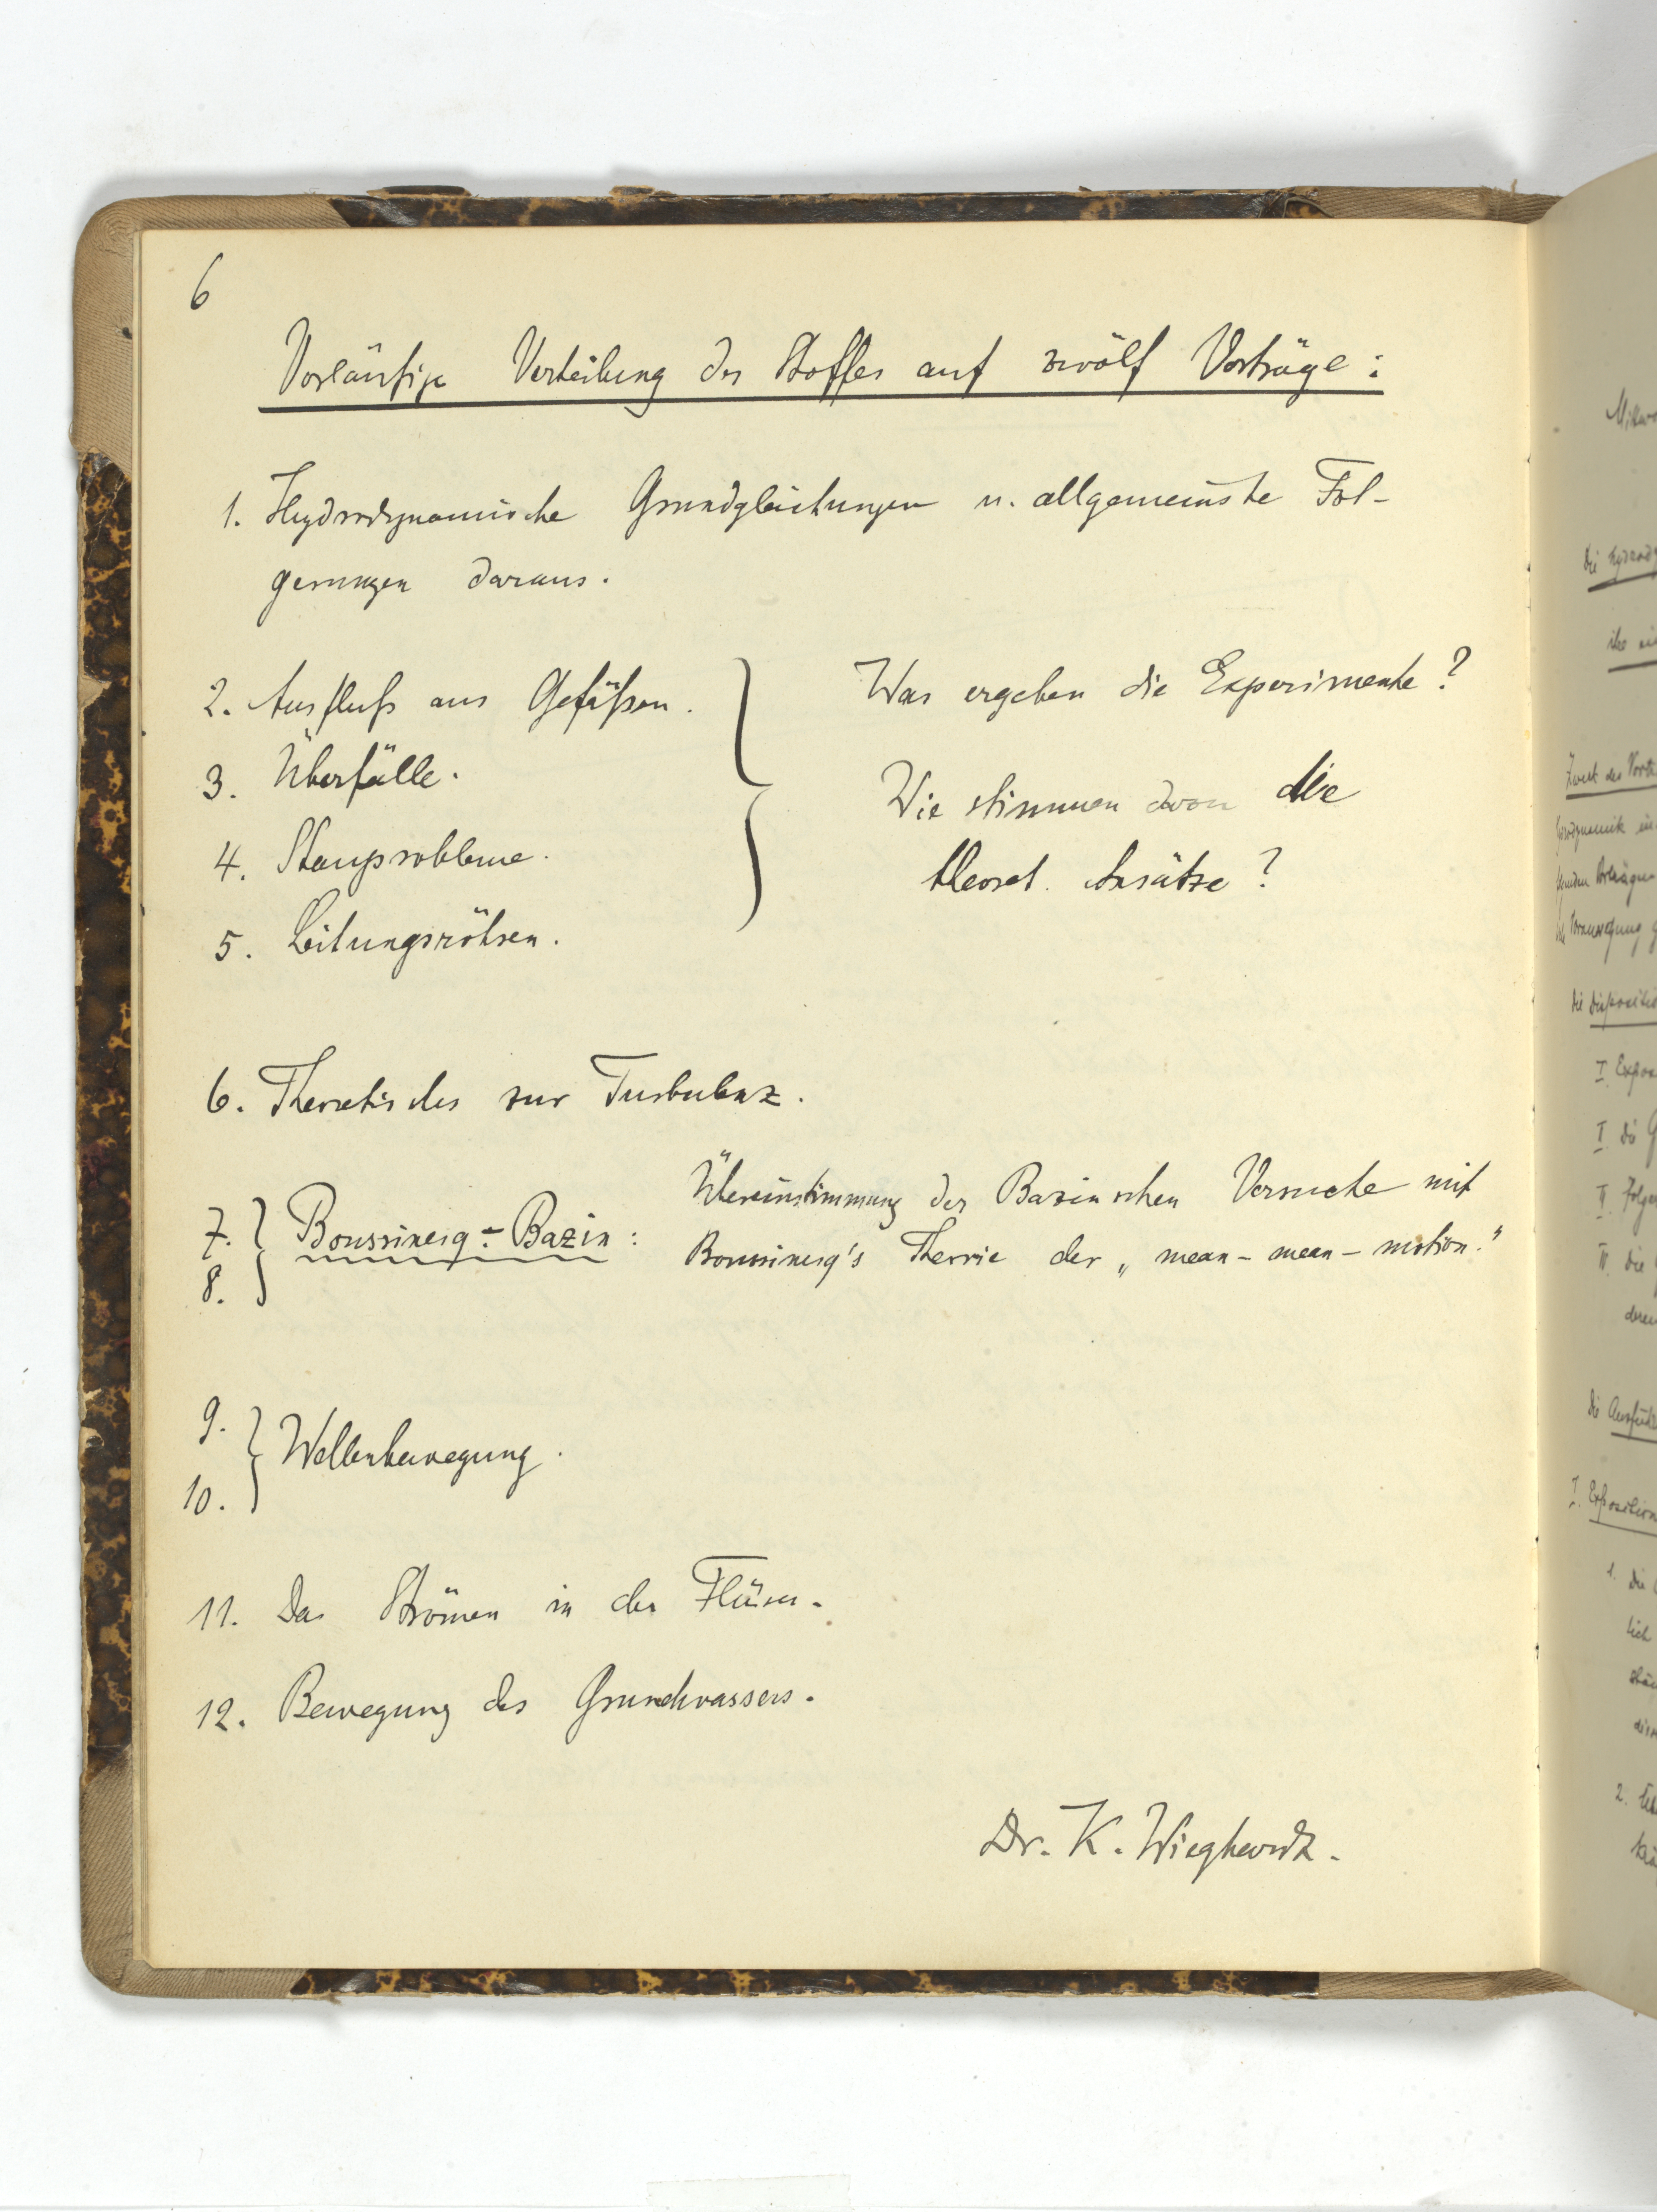 6
Vorläufige Verteilung des Stoffes auf zwölf Vorträge:
1. Hydrodynamische Grundgleichungen u. allgemeinste Fol-
gerungen daraus.
2. Ausfluß aus Gefäßen.
3. Überfälle.
4. Stauprobleme.
5. Leitungsröhren.
Was ergeben die Experimente?
Wie stimmen die
theoret. Ansätze?
6. Theoretisches zur Turbulenz.
7.
8.
Boussinesq-Bazin:
Übereinstimmung der Bazinschen Versuche mit
Boussinesq's Theorie der „mean-mean-motion."
9.
10.
Wellenbewegung.
11. Das Strömen in den Flüssen.
12. Bewegung des Grundwassers.
Dr. K. Wieghardt.
Die
I.
I Die
II.
III. die
I. Exposition
1. Die
2.